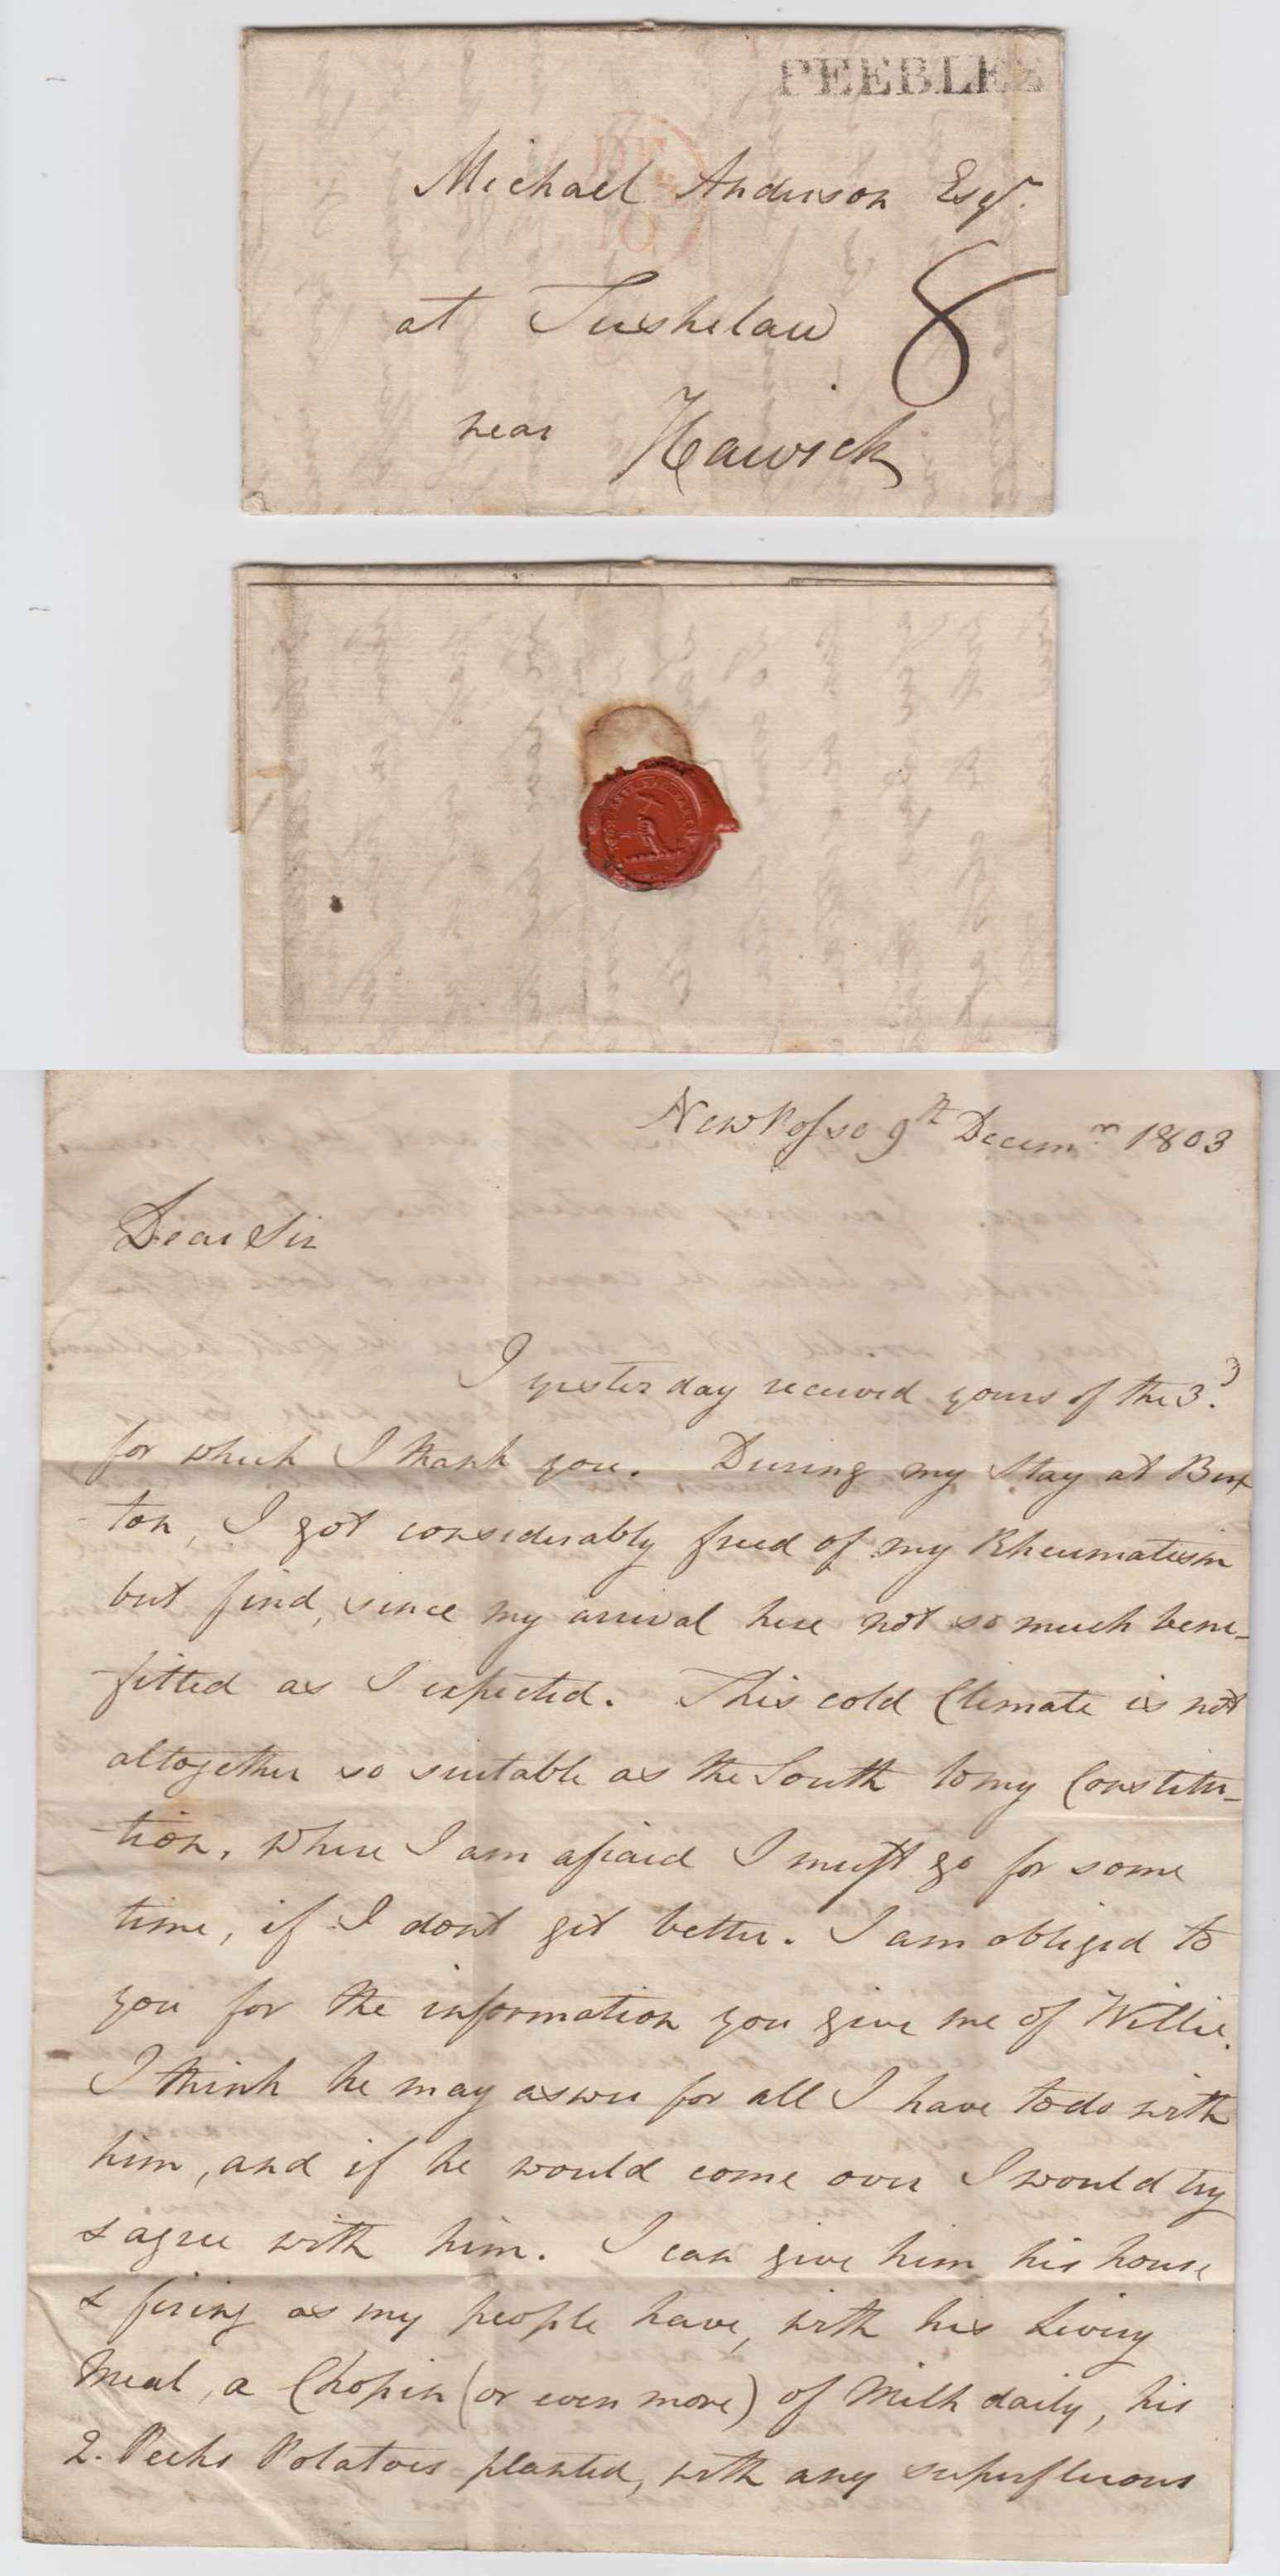 PEEBLES
DE
10
Michael Anderson Esqr.
at Tushelaw 8
near Hawick
New Posso 9th Decemr. 1803
Dear Sir
I yesterday received yours of the 3d.
for which I thank you. During my Stay at Bux
ton, I got considerably freed of my Rheumatism
but find, since my arrival here not so much bene-
fitted as I expected. This cold Climate is not
altogether so suitable as the South to my Constitu-
tion, where I am afraid I must go for some
time, if I dont get better. I am obliged to
you for the information you give me of Willie.
I think he may answer for all I have to do with
him, and if he would come over I would try
& agree with him. I can give him his house
& firing as my people have, with his Living
Meal, a Chopin (or even more) of Milk daily, his
2. Pecks Potatoes planted, with any superfluous